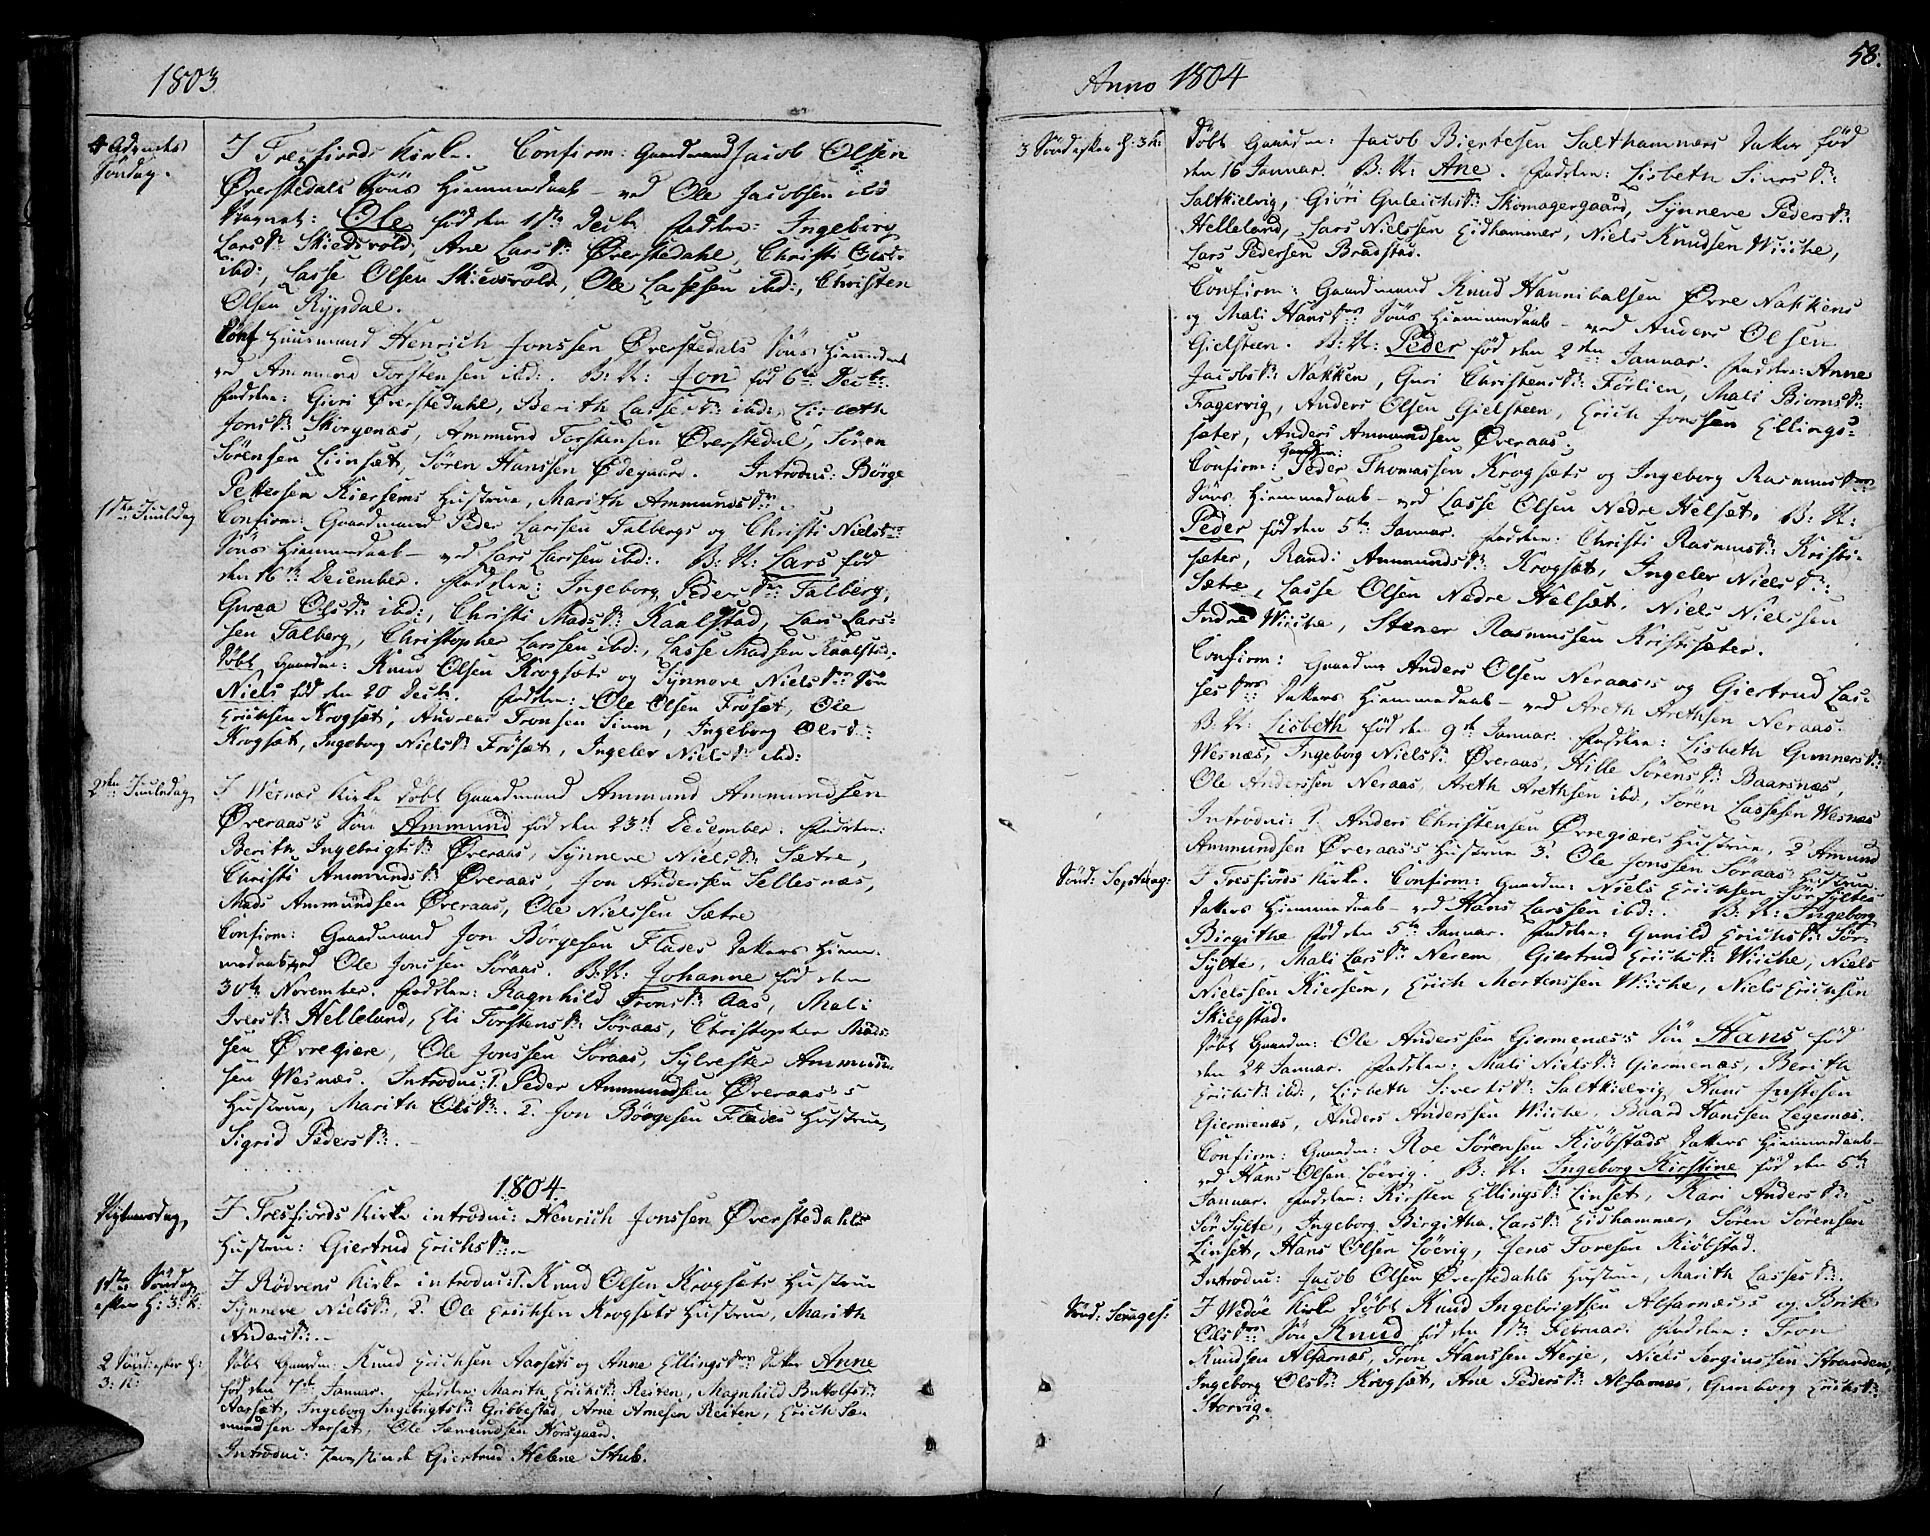 1803
4 Advents
Søndag.
I Tresfiords Kirke. Confirm: Gaardmand Jacob Olsen
Øverstedals Søns Hiemmedaab - ved Ole Jacobsen ibd
Nagnet: Ole fød den 1ste Decbr. Faddere: Ingeborg
Larsdr: Skiedsvold, Ane Larsdr: Øverstedahl, Christi Olsdr
ibd:, Lasse Olsen Skiedsvold, Ole Lassesen ibd:, Christen
Olsen Rypdal.
Conf Huusmand Henrich Jonssen Øverstedals Søns Hiemmedaab
ved Ammund Torstensen ibd:. B: N: Jon fød 6te Decbr.
Faddere: Giøri Øverstedahl, Berith Lassesdr: ibd:, Lisbeth
Jonsdr: Skorgenæs, Ammund Torstensen Øverstedal, Søren
Sørensen Liinset, Søren Hanssen Ødegaard. Introduc: Børge
Pettersen Kiersems Hustrue, Marith Ammundsdr:
1ste Juuledag
Confirm: Gaardmand Peder Larssen Talbergs og Christi Nielsdrs
Søns Hiemmedaab - ved Lars Larssen ibd:. B: N: Lars fød
den 16de December. Faddere: Ingeborg Pedersdr: Talberg,
Guraa Olsdr: ibd:, Christi Madsdr: Kaalstad, Lars Lars-
sen Talberg, Christopher Larssen ibd:, Lasse Madsen Kaalstad.
Døbt Gaardm: Knud Olsen Krogsæts og Synnøve Nielsdrs Søn
Niels fød den 20 Decbr. Faddere: Ole Olsen Frøset, Ole
Erichsen Krogsæt, Andreas Tronsen Sinm, Ingeborg Olsd:
Krogsæt, Ingeborg Nielsdr: Frøsæt, Ingeler Nielsdr: ibd:
2den Juuledag
I Wesnæs Kirke døbt Gaardmand Ammund Ammundsen
Øveraas's Søn Ammund fød den 23de December. Faddere:
Berith Ingebrigtsdr: Øveraas, Synneve Nielsdr: Sætre,
Christi Ammundsdr: Øveraas, Jon Andersen Sellesnæs,
Mads Ammundsen Øveraas, Ole Nielssen Sætre
Confirm: Gaardmand Jon Børgesen Flades Datters Hiem-
medaab ved Ole Jonssen Søraas. B: N: Johanne fød den
30te November. Faddere: Ragnhild Tronsdr: Aas, Mali
Iversdr: Helleland, Eli Torstensdr: Søraas, Christopher Mads-
sen Ørregiære, Ole Jonssen Søraas, Sylvester Ammund-
sen Wesnæs. Introduc: 1. Peder Ammundsen Øveraas's
Hustrue, Marith Olsdr:. 2. Jon Børgesen Flades Hustrue,
Sigrid Pedersdr:.
1804.
Nytaarsdag,
I Tresfiords Kirke introduc: Henrich Jonssen Øverstedahls
Hustrue: Giertrud Erichsdr:
1ste Søndag
efter H: 3: K:
I Rødvens Kirke introduc: 1. Knud Olsen Krogsæts Hustrue
Synneve Nielsdr:, 2. Ole Erichsen Krogsæts Hustrue, Marith
Andersdr:
2 Sønd: efter H:
3: K:
Døbt Gaardm: Knud Erichsen Aarsets og Anne Ellingsdrs Datter Anne
fød den 7de Januar. Faddere: Marith Erichsdr: Reiten, Magnhild Botolfsdr:
Aarsæt, Ingeborg Ingebrigtsdr: Gribbestad, Arne Arnesen Reiten, Erich Sæ-
mundsen Aarsæt, Ole Sæmundsen Horsgaard.
Introduc: Giertrud Helene Stub.
Anno 1804
58.
3 Sønd: efter H: 3 K:
Døbt Gaardm: Jacob Biertesen Salthammers Datter fød
den 16 Januar. B: N: Ane. Faddere: Lisbeth Siversdr:
Saltkielvig, Giøri Guleichsdr: Skomagergaard, Synneve Pedersdr:
Helleland, Lars Nielssen Eidhammer, Niels Knudsen Wiiche,
Lars Pedersen Bradstad.
Confirm: Gaardmand Knud Hannibalsen Øvre Nakkens
og Mali Hansdrs Søns Hiemmedaab - ved Anders Olsen
Gielsteen. B: N: Peder fød den 2den Januar. Faddere: Anne
Jacobsdr: Nakken, Guri Christensdr: Førlien, Mali Biornsdr:
Fagervig, Anders Olsen Gielsteen, Erich Jonssen Ellings-
sæter, Anders Ammundsen Øveraas.
Confirm: Gaardm: Peder Thomassen Krogsæts og Ingeborg Rasmusdrs
Søns Hiemmedaab - ved Lasse Olsen Nedre Helsæt. B: N:
Peder fød den 5te Januar. Faddere: Christi Rasmusdr: Kristi-
sæter, Randi Ammundsdr: Krogsæt, Ingeler Nielsdr:
Sætre, Lasse Olsen Nedre Helsæt, Niels Nielssen
Indre Wiiche, Stener Rasmussen Kristisæter.
Confirm: Gaardm Anders Olsen Neraas's og Giertrud Las-
sesdrs Datters Hiemmedaab - ved Areth Arethsen Neraas.
B: N: Lisbeth fød den 9de Januar. Faddere: Lisbeth Gunnersdr:
Wesnæs, Ingeborg Nielsdr: Øveraas, Hille Sørensdr: Baarsnæs,
Ole Anderssen Neraas, Areth Arethsen ibd., Søren Lassesen Wesnæs
Introduc: 1. Anders Christensen Ørregiæres Hustrue, 2 Amund
Ammundsen Øveraas's Hustrue 3. Ole Jonssen Søraas' Hustrue.
Sønd: Septuag:
I Tresfiords Kirke. Confirm: Gaardm: Niels Erichsen Sør Syltes
Datters Hiemmedaab - ved Hans Larssen ibd:. B: N: Ingeborg
Birgithe fød den 5te Januar. Faddere: Gunild Erichsdr: Sør-
Sylte, Mali Larsdr: Nerem, Giertrud Erichsdr: Wiiche, Niels
Nielssen Kiersem, Erich Mortenssen Wiiche, Niels Erichsen
Skiegstad.
Døbt Gaardm: Ole Anderssen Giermenæs's Søn Hans fød
den 24 Januar. Faddere: Mali Nielsdr: Giermenæs, Berith
Erichsdr: ibd., Lisbeth Sivertsdr: Saltkielvig, Hans Justesen
Giermenæs, Anders Anderssen Wiiche, Baard Hanssen Legernæs.
Confirm: Gaardm: Roe Sørensen Kiøbstads Datters Hiemmedaab-
ved Hans Olsen Løevig. B: N: Ingeborg Kirstine fød den 5te
Januar. Faddere: Kirsten Ellingsdr: Linset, Kari Andersdr:
Sør Sylte, Ingeborg Birgitha Larsdr: Eidhammer, Søren Sørensen
Linset, Hans Olsen Løevig, Jens Toresen Kiøbstad.
Introduc: Jacob Olsen Øverstedahls Hustrue, Marith Lassesdr:
Sønd: Sexages:
I Wedøe Kirke døbt Knud Ingebrigtsen Alfarnæs's og Brite
Olsdrs Søn Knud fød den 1ste Februar. Faddere: Tron
Knudsen Alfarnæs, Tron Hanssen Herje, Niels Jerginssen Stranden,
Ingeborg Olsdr: Krogsæt, Ane Pedersdr: Alfarnæs, Gunborg Erichsdr:
Storvig.